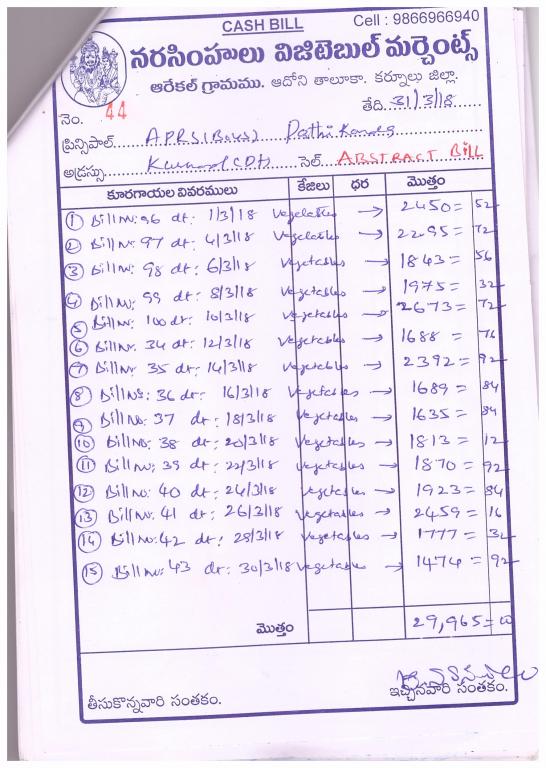 CASH BILL Cell : 9866966940
నరసింహులు విజిటెబుల్ మర్చెంట్స్
ఆరేకల్ గ్రామము. ఆదోని తాలూకా. కర్నూలు జిల్లా.
నెం. 44 తేది. 31/3/18
ప్రిన్సిపాల్. APRS (Boys)
అడ్రస్సు. సెల్. ABSTRACT Bill
కూరగాయల వివరములు కేజీలు ధర మొత్తం
① Bill No: 96 dt: 1/3/18 Vegetables → 2450=52
② Bill No: 97 dt: 4/3/18 Vegetables → 2295=72
③ Bill No: 98 dt: 6/3/18 Vegetables → 1843=56
④ Bill No: 99 dt: 8/3/18 Vegetables → 1975=32
⑤ Bill No: 100 dt: 10/3/18 Vegetables → 2673=72
⑥ Bill No: 34 dt: 12/3/18 Vegetables → 1688=76
⑦ Bill No: 35 dt: 14/3/18 Vegetables → 2392=92
⑧ Bill No: 36 dt: 16/3/18 Vegetables → 1689=84
⑨ Bill No: 37 dt: 18/3/18 Vegetables → 1635=84
⑩ Bill No: 38 dt: 20/3/18 Vegetables → 1813=12
⑪ Bill No: 39 dt: 22/3/18 Vegetables → 1870=92
⑫ Bill No: 40 dt: 24/3/18 Vegetables → 1923=84
⑬ Bill No: 41 dt: 26/3/18 Vegetables → 2459=16
⑭ Bill No: 42 dt: 28/3/18 Vegetables → 1777=32
⑮ Bill No: 43 dt: 30/3/18 Vegetables → 1474=92
మొత్తం 29,965=00
తీసుకొన్నవారి సంతకం. ఇచ్చినవారి సంతకం.